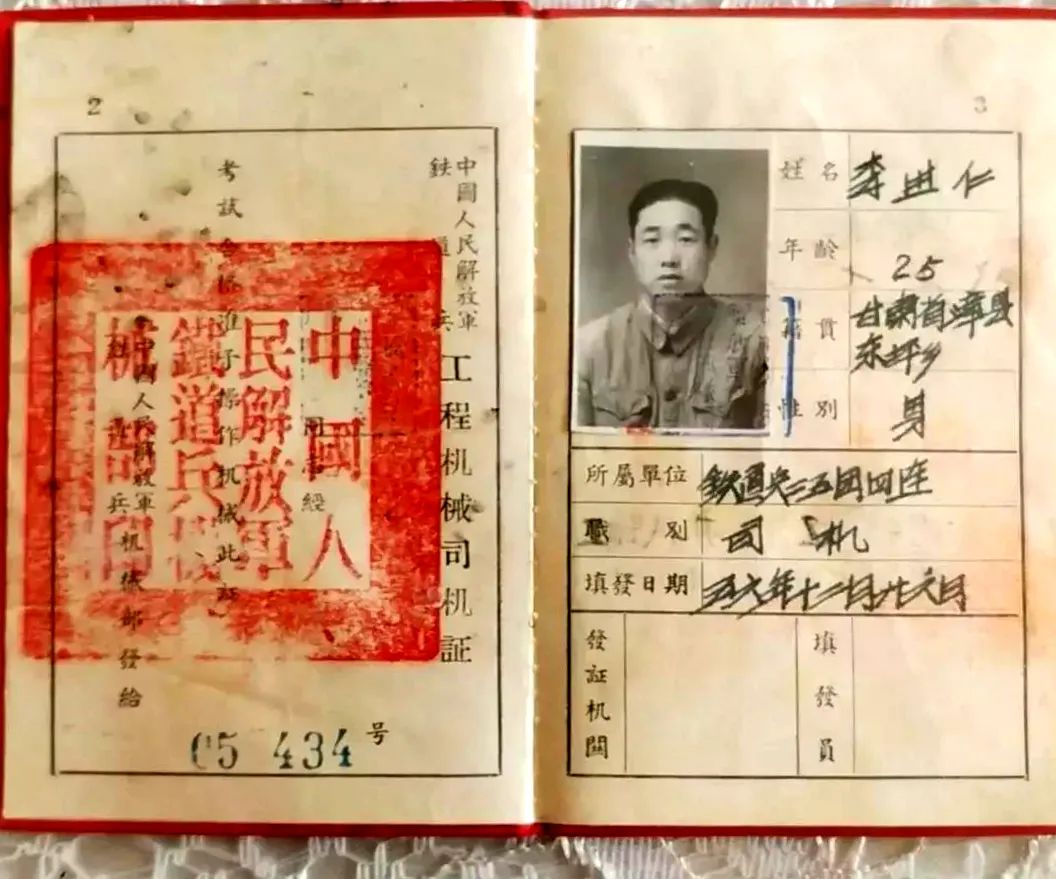 2
中國人民解放軍
鉄道兵
工程机械司机証
同志經
考試合格准予操作机械此証
中國人民解放軍
鉄道兵机械部發給
05434号
中國人
民解放軍
鐵道兵機
械部印
3
姓名 李进仁
年齡 25
籍貫 甘肃省漳县
东坪乡
性別 男
所屬單位 鉄道兵二五团四连
職別 司机
填發日期 五六年十二月廿六日
發証机關
填發員